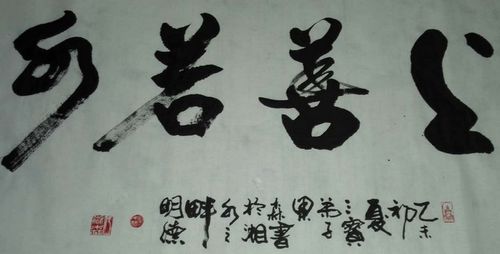 上善若水
乙未
初夏
三寶
弟子
果
森書
於湘
水之
畔
明德